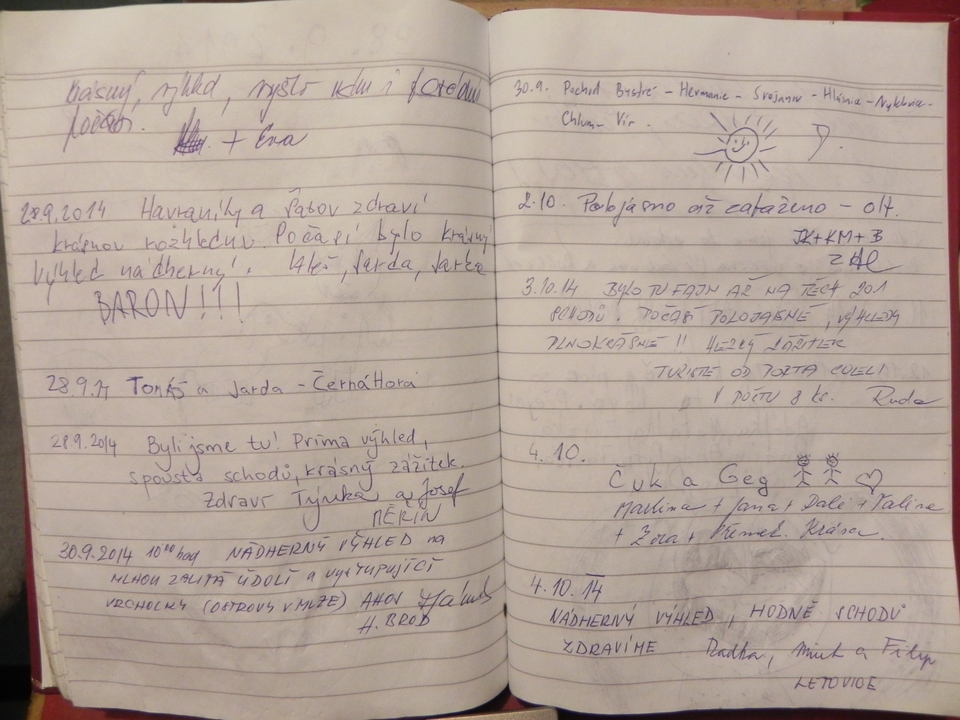 Krásný výhled, vyšlo nám i
počasí.
+ Eva
28.9.2014 Havraníky a Šatov zdraví
krásnou rozhlednu. Počasí bylo krásný
výhled nádherný. Aleš, Jarda, Šárka
BARON!!!
28.9.14 Tomáš a Jarda - Černá Hora
28.9.2014 Byli jsme tu! Prima výhled,
spousta schodů, krásný zážitek.
Zdraví Týnka a Josef
MĚŘÍN
30.9.2014 10 hod NÁDHERNÝ VÝHLED na
MLHOU ZALITÁ ÚDOLÍ a vystupující
VRCHOLKY (OSTROVY V MLZE) AHOJ
H. BROD
30.9. Pochod Bystré - Heřmanice - Svojanov - Hlásnice -
Chlum - Vír.
2.10. Polojasno až zataženo - Olt.
JK+KM+B
3.10.14 BYLO TU FAJN AŽ NA TĚCH 201
SCHODŮ. POČASÍ POLOJASNÉ, VÝHLEDY
PLNOKRÁSNÉ !! HEZKÝ ZÁŽITEK
TURISTÉ OD
V POČTU 8 ks. Ruda
4.10.
Čuk a Geg
Martina + Jana + Dali +
+ Zora + Přemek.
4.10.14
NÁDHERNÝ VÝHLED, HODNĚ SCHODŮ
ZDRAVÍME Radka, Mirek a Filip
LETOVICE